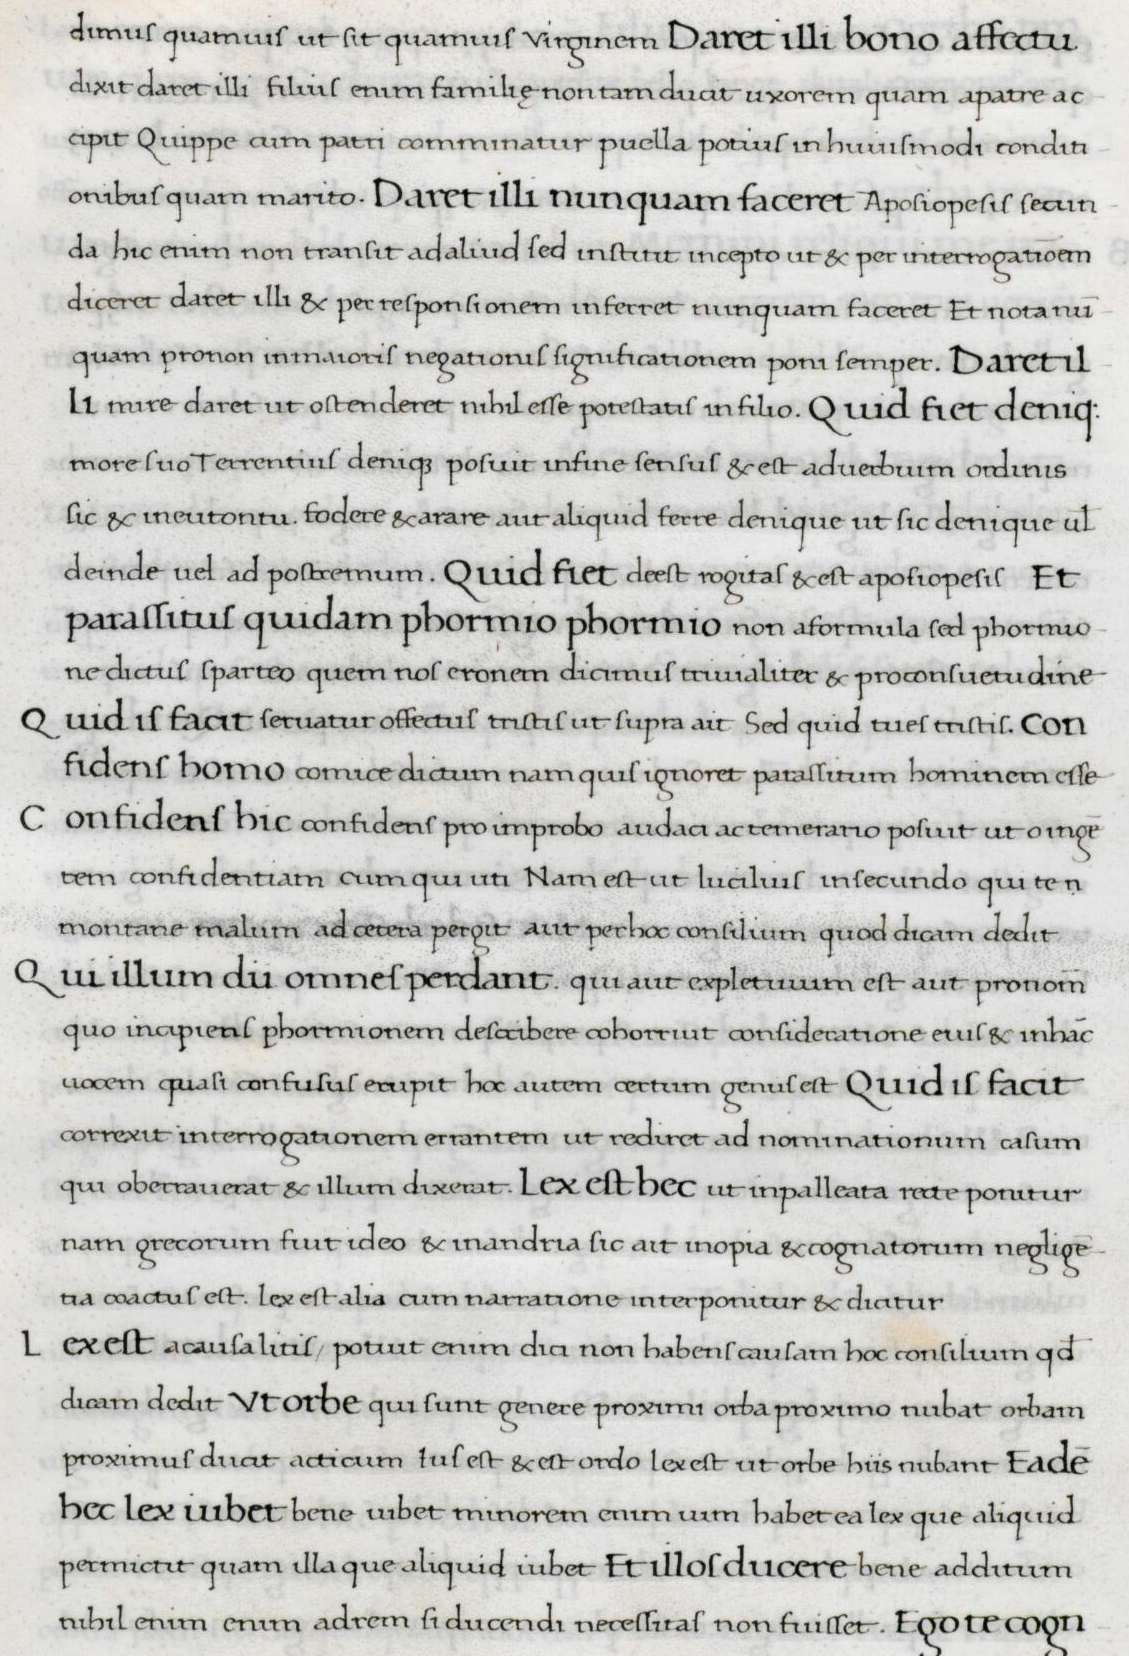 dimus quamuis ut sit quamuis virginem Daret illi bono affectu.
dixit daret illi filius enim familię non tam ducit uxorem quam apatre ac
cipit Quippe cum patri comminatur puella potius in huiusmodi conditi
onibus quam marito. Daret illi nunquam faceret Aposiopesis secun
da hic enim non transit ad aliud sed institit incepto ut & per interrogatiōem
diceret daret illi & per responsionem inferret nunquam faceret Et nota nū
quam pro non in maioris negationis significationem poni semper. Daret il
li mire daret ut ostenderet nihil esse potestatis in filio. Quid fiet deniq:
more suo Terrentius deniqȝ posuit in fine sensus & est aduerbium ordinis
sic & ineutontu. fodere & arare aut aliquid ferre denique ut sic denique ul̄
deinde uel ad postremum. Quid fiet deest rogitas & est aposiopesis Et
parassitus quidam phormio phormio non aformula sed phormio
ne dictus sparteo quem nos eronem dicimus triuialiter & proconsuetudine
Quid is facit seruatur offectus tristis ut supra ait Sed quid tu es tristis. Con
fidens homo comice dictum nam quis ignoret parassitum hominem esse
Confidens hic confidens pro improbo audaci ac temerario posuit ut o ingē
tem confidentiam cum qui uti Nam est ut lucilius insecundo qui te n
montane malum ad cetera pergit aut per hoc consilium quod dicam dedit
Qui illum dii omnes perdant. qui aut expletiuum est aut pronom̄
quo incipiens phormionem describere cohorruit consideratione eius & in hāc
uocem quasi confusus erupit hoc autem certum genus est Quid is facit
correxit interrogationem errantem ut rediret ad nominationum casum
qui oberrauerat & illum dixerat. Lex est hec ut inpalleata recte ponitur
nam grecorum fuit ideo & inandria sic ait inopia & cognatorum negligē
tia coactus est. lex est alia cum narratione interponitur & dicitur
Lex est acausa litis/ potuit enim dici non habens causam hoc consilium qd̄
dicam dedit Vt orbe qui sunt genere proximi orba proximo nubat orbam
proximus ducit acticum Ius est & est ordo lex est ut orbe hiis nubant Eadē
hec lex iubet bene iubet minorem enim uim habet ea lex que aliquid
permictit quam illa que aliquid iubet Et illos ducere bene additum
nihil enim enim adrem si ducendi necessitas non fuisset. Ego te cogn